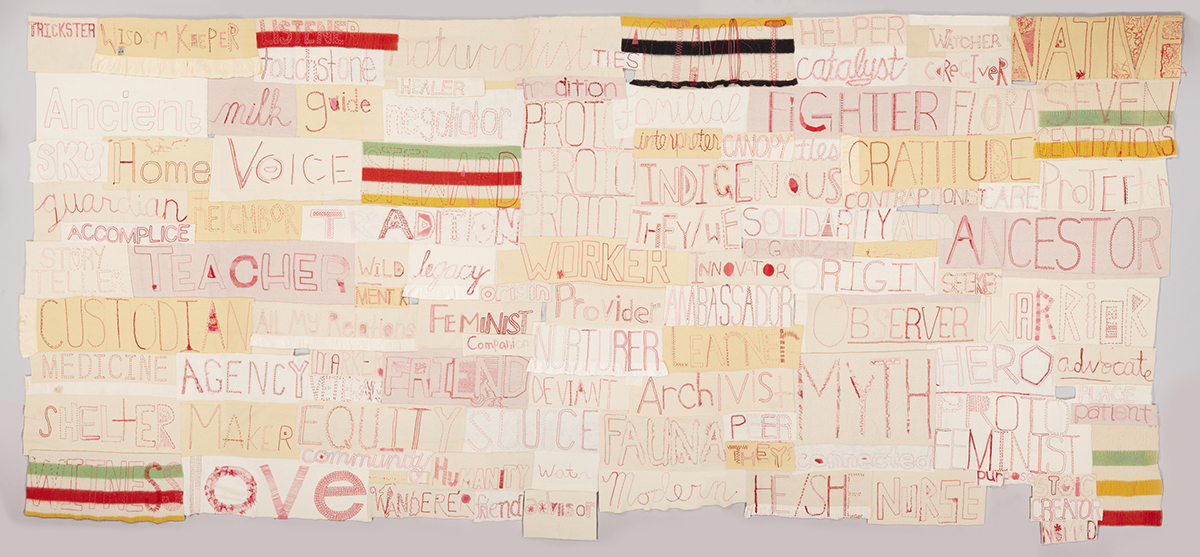 TRICKSTER WISDOM KEEPER LISTENER naturalist TIES ACTIVIST HELPER WATCHER NATIVE
touchstone catalyst careGiVER
HEALER tradition
Ancient milk guide negotiator PROTO familial FiGHTER FLORA SEVEN
SKY Home VOICE STEWARD PROTO interpreter CANOPY ties GRATITUDE GENERATIONS
INDIGENOUS CONTRAPTIONS CARE PROTECTOR
guardian NEIGHBOR TRADITION PROTO THEY/WE SOLIDARITY ANCESTOR
ACCOMPLICE ORGANIZER
STORY TEACHER WiLD legacy WORKER INNOVATOR ORIGIN SEEKER
TELLER
MENTOR origin Provider AMBASSADOR
CUSTODIAN All My Relations FEMINIST OBSERVER WARRIOR
Companion NURTURER LEARNER
MEDICINE AGENCY FRIEND HERO advocate
DEVIANT ArchiVist MYTH
PLACE
SHELTER MAKER EQUITY SOURCE FAUNA PEER PROTO patient
FEMINIST
community HUMANITY Water THEY connected
WITNESS love WANDERER friend advisor Modern HE/SHE NURSE
CREATOR